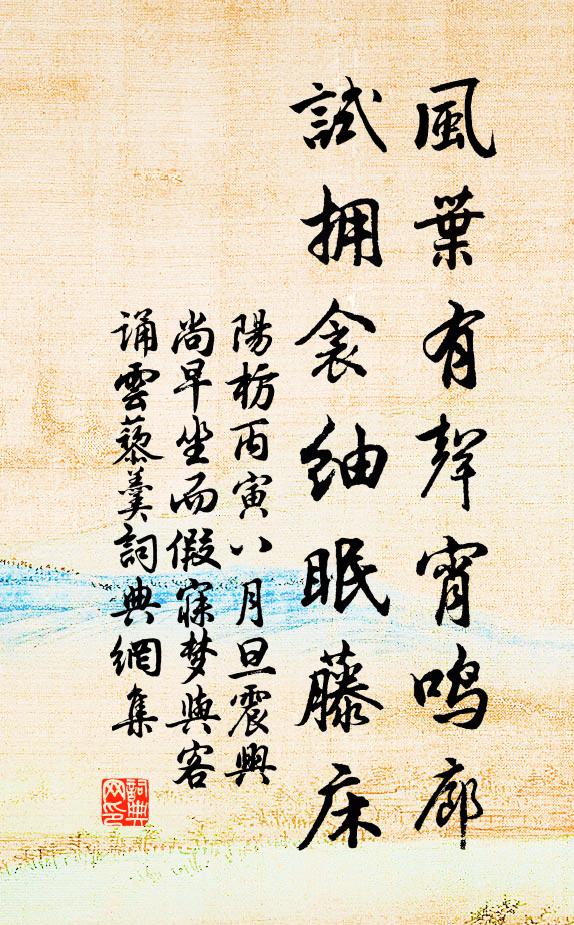 風葉有聲宵鳴廊
試擁衾紬眠藤床
陽枋丙寅八月旦震興
尚早坐而假寐梦與客
誦雲藜羹詞典網集
詞典
网印